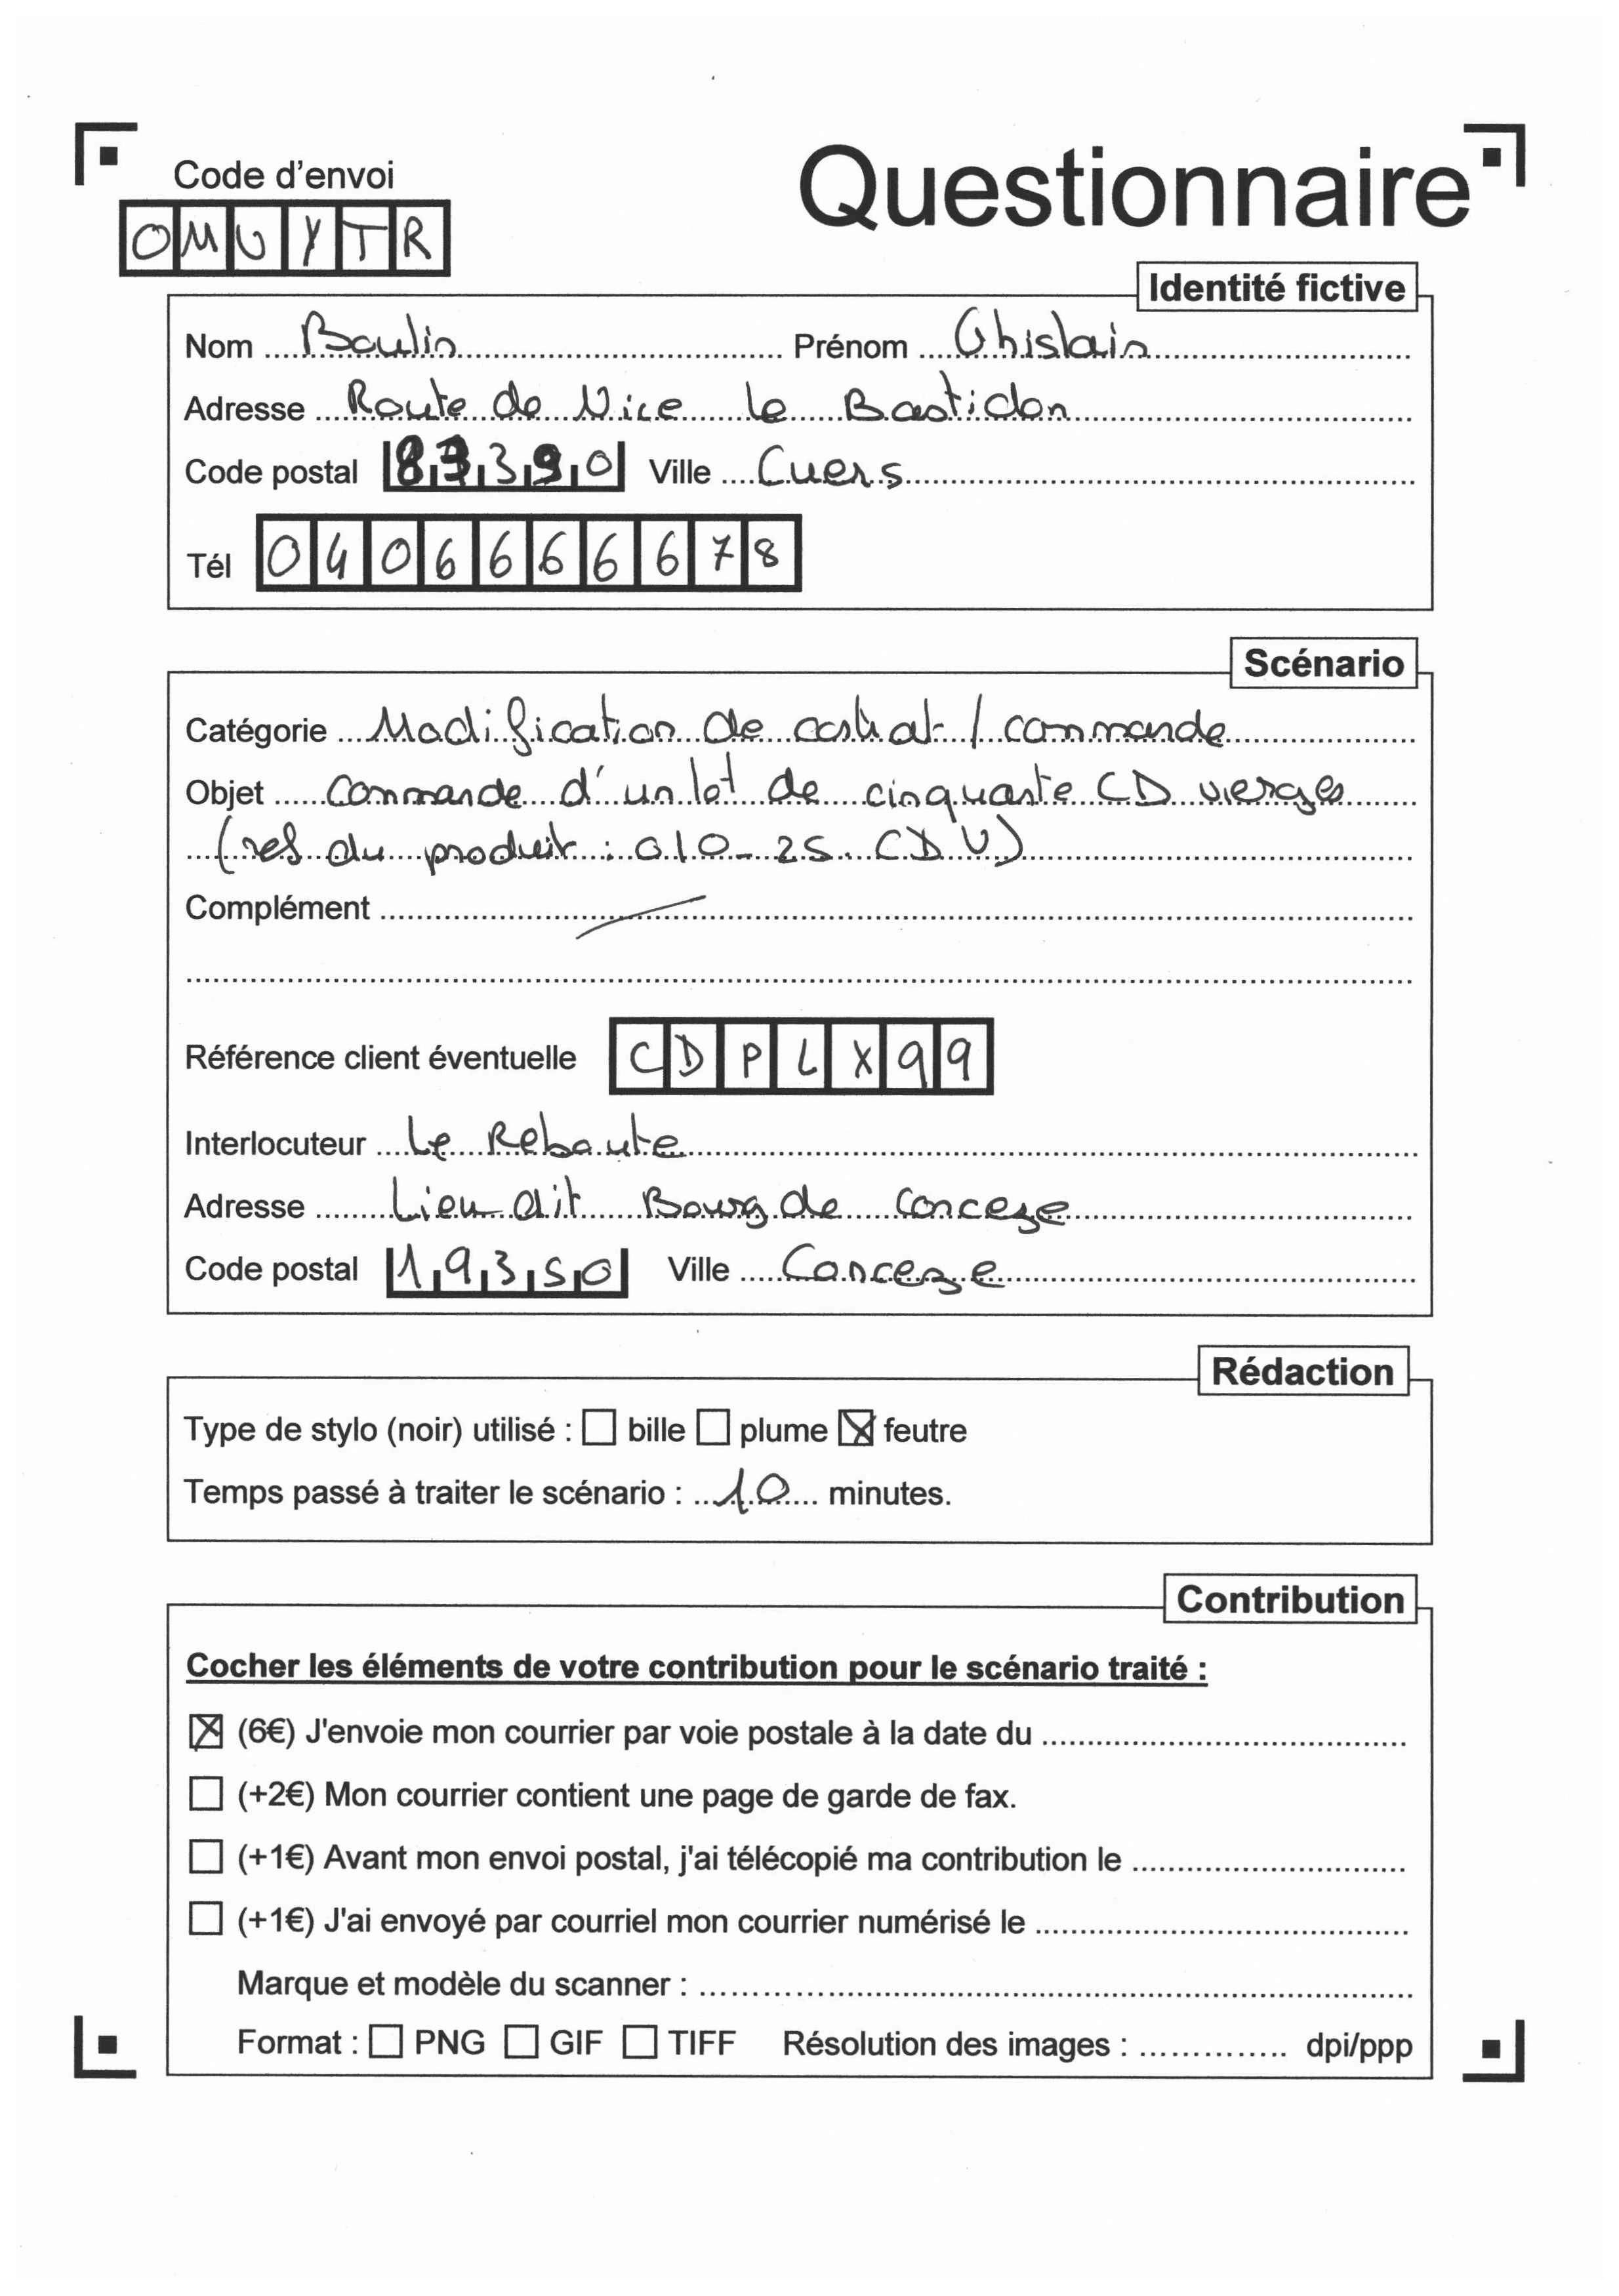 Code d'envoi
Questionnaire
OMUYTR
Identité fictive
Nom Boulin Prénom Ghislain
Adresse Route de Nice le Bastidon
Code postal 83390 Ville Cuers
Tél 0406666678
Scénario
Catégorie Modification de contrat / commande
Objet Commande d'un lot de cinquante CD vierges
(ref du produit : 010-25. CDV)
Complément
Référence client éventuelle CDPLX99
Interlocuteur Le Reboute
Adresse Lieu dit Bourg de Conceze
Code postal 19350 Ville Conceze
Rédaction
Type de stylo (noir) utilisé : ☐ bille ☐ plume ☒ feutre
Temps passé à traiter le scénario : 10 minutes.
Contribution
Cocher les éléments de votre contribution pour le scénario traité :
☒ (6€) J'envoie mon courrier par voie postale à la date du
☐ (+2€) Mon courrier contient une page de garde de fax.
☐ (+1€) Avant mon envoi postal, j'ai télécopié ma contribution le
☐ (+1€) J'ai envoyé par courriel mon courrier numérisé le
Marque et modèle du scanner :
Format : ☐ PNG ☐ GIF ☐ TIFF Résolution des images : dpi/ppp